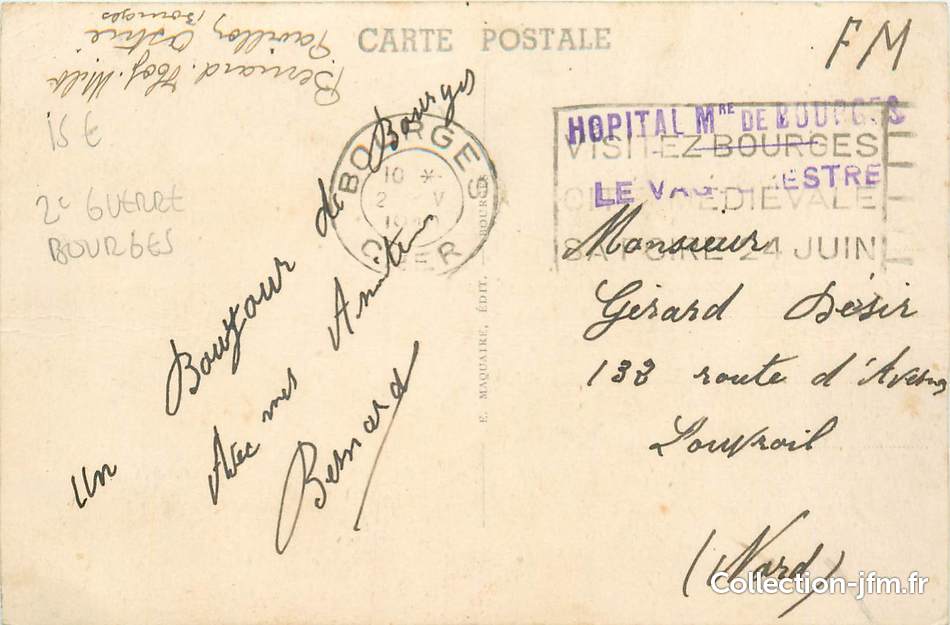 CARTE POSTALE
FM
Bernard. Hop. Milit
Pavillon
Bourges
15 €
2e GUERRE
BOURGES
BOURGES
10 *
2 V
CHER
HOPITAL MRE DE BOURGES
LE VAGUEMESTRE
VISITEZ BOURGES
CITE MEDIEVALE
SA FOIRE 24 JUIN
Un Bonjour de Bourges
Avec mes Amitiés
Bernard
E. MAQUAIRE, ÉDIT. BOURGES
Monsieur
Gérard Désir
133 route d'Avesnes
Louvroil
(Nord)
Collection-jfm.fr